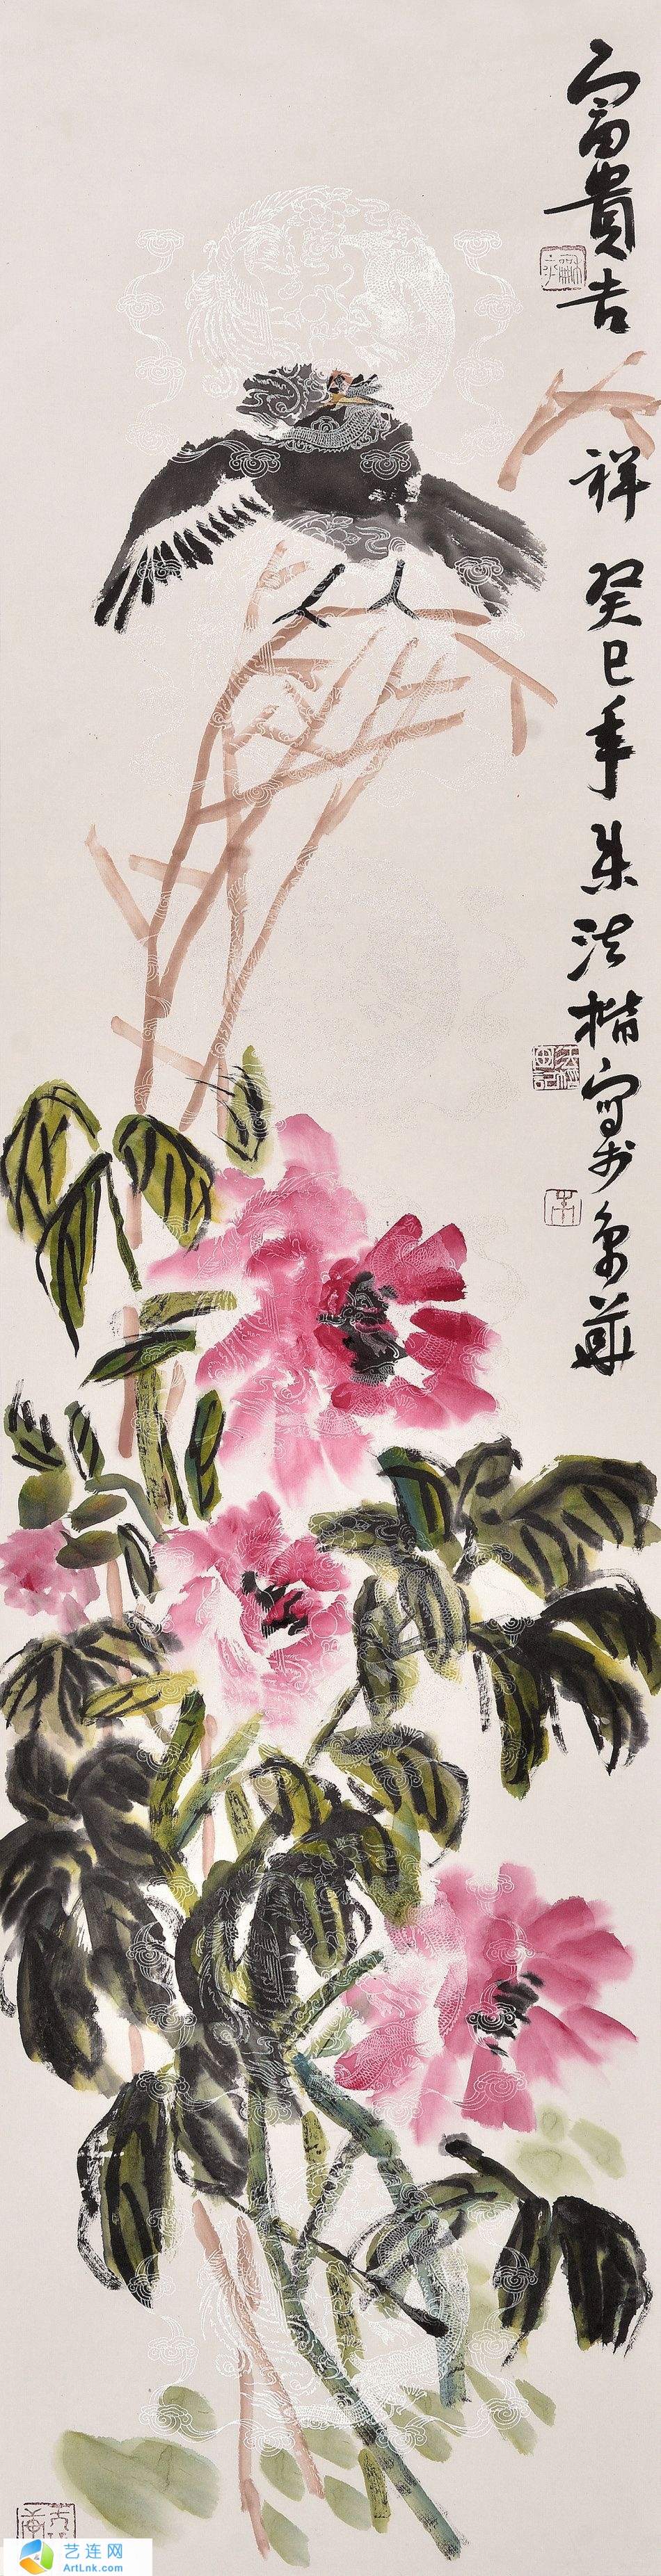 富貴吉祥 癸巳年朱法楷写於京華
艺连网
ArtLnk.com